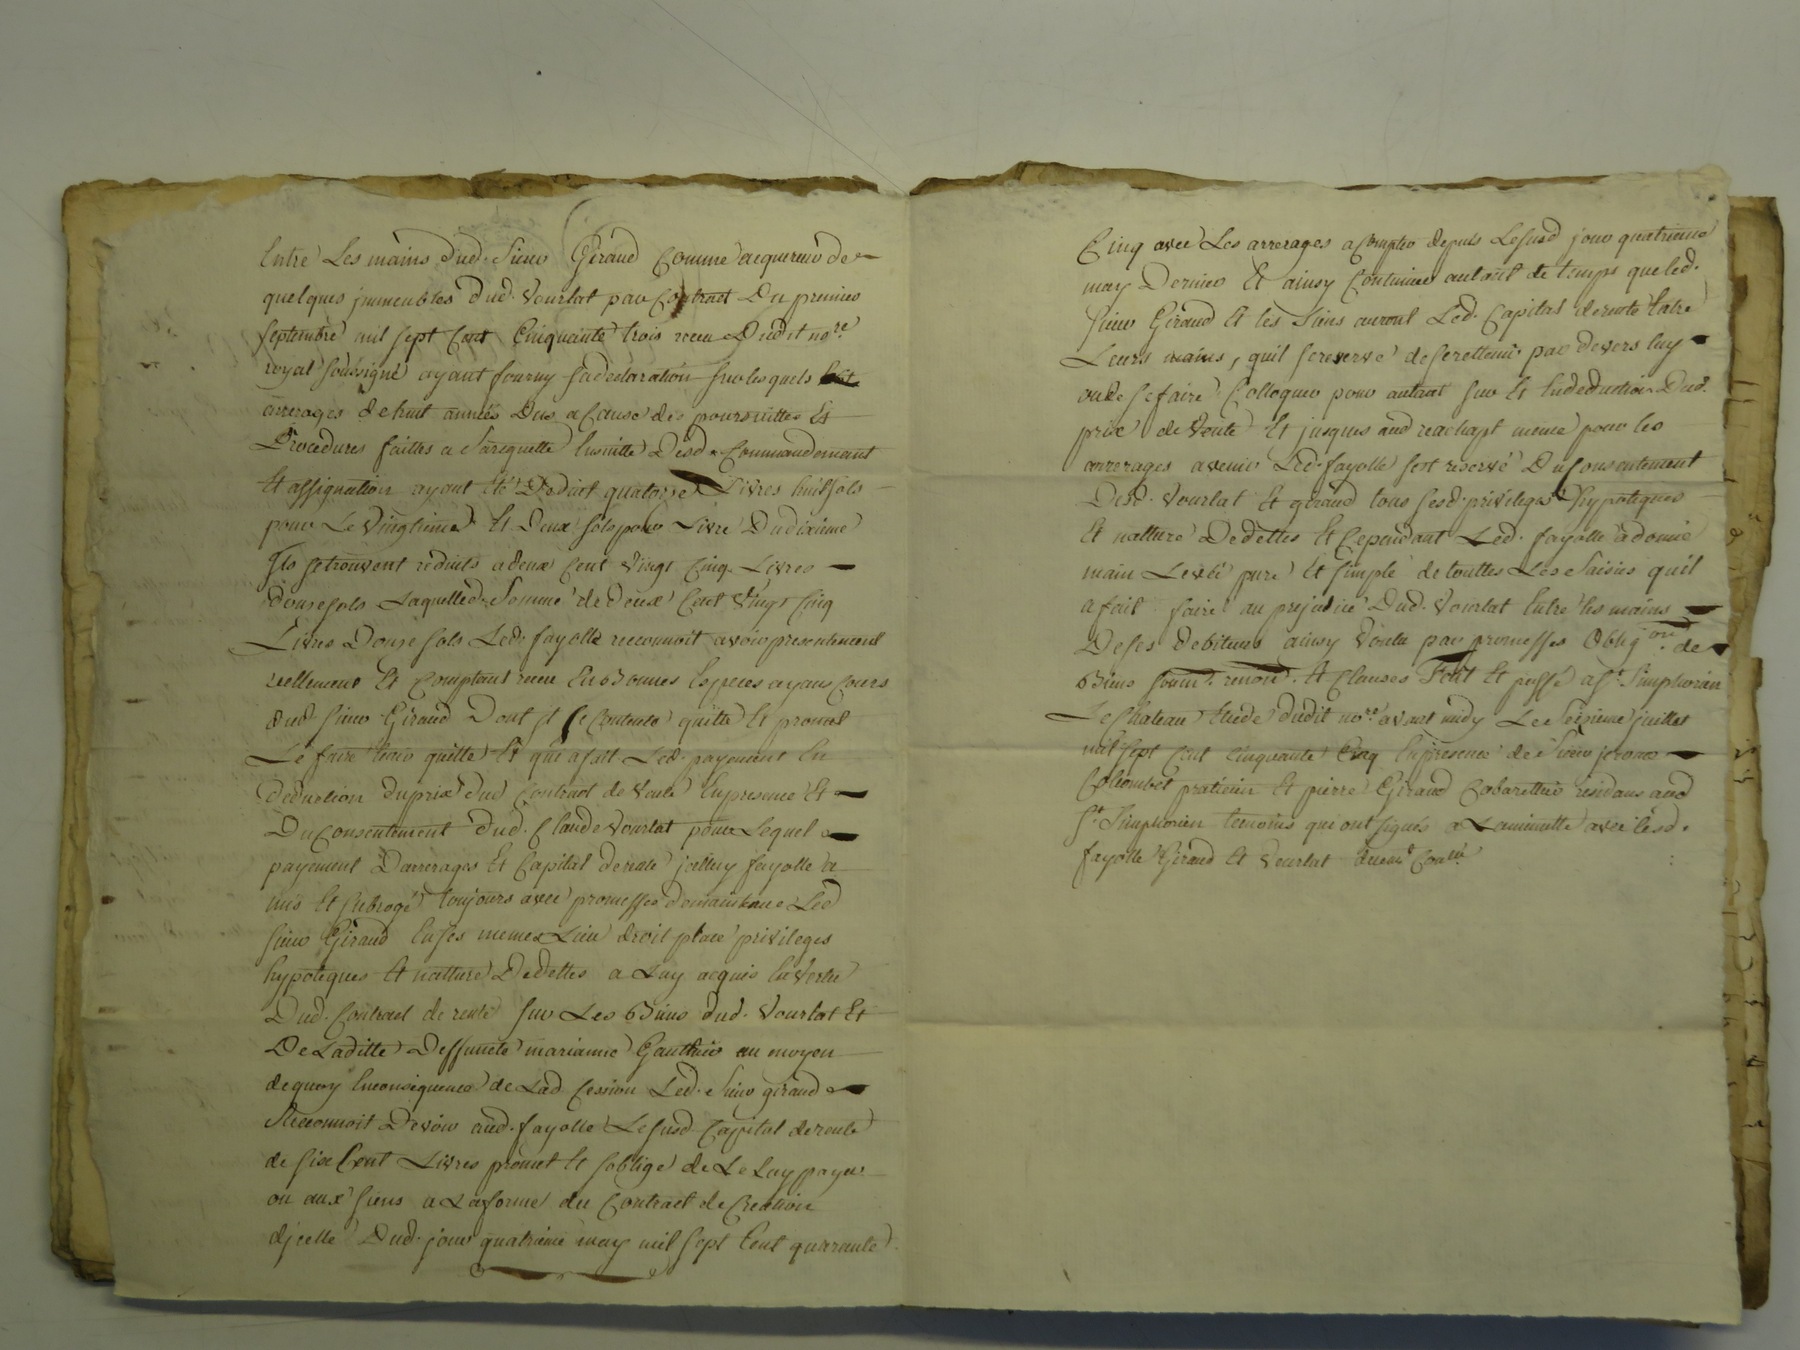 Entre Les mains dud. Sieur Giraud Comme acquereur de
quelques jmmeubles dud. Vourlat par Contract Du premier
Septembre mil sept Cent Cinquante trois receu Dudit nore.
royal soussigné ayant fourny sa declaration sur lesquels
arrerages de huit années Dus a Cause des poursuittes Et
Procedures faittes a Sa requette Ensuitte Desd. Commandement
Et assignation ayant été Deduit quatorze Livres huit sols
pour Le Vingtieme Et Deux sols pour Livre Du dixieme
Ils se trouvent reduits a deux Cent Vingt Cinq Livres
douze sols Laquelled. Somme de Deux Cent Vingt Cinq
Livres Douze sols Led. fayolle reconnoit avoir presentement
reellement Et Comptant receu En Bonnes Especes ayans Cours
dud. sieur Giraud Dont jl se Contente quitte Et promet
Le faire tenir quitte Et qui a fait Led. payement En
deduction du prix dud. Contract de Vente En presence Et
Du Consentement dud. Claude Vourlat pour Lequel
payement D'arrerages Et Capital de rente jcelluy fayolle a
mis Et subrogé toujours avec promesse de maintenue Led.
sieur Giraud En ses memes Lieu droit place privileges
hypoteques Et natture De dettes a Luy acquis En Vertu
Dud. Contract de rente sur Les Biens dud. Vourlat Et
De Laditte Deffuncte marianne Gauthier au moyen
de quoy En consequence de Lad. Cession Led. Sieur giraud
Reconnoit Devoir aud. fayolle Le susd. Capital de rente
de six Cent Livres promet Et s'oblige de Le Luy payer
ou aux siens a La forme du Contract de Creation
djcelle Dud. jour quatrieme may mil sept Cent quarante
Cinq avec Les arrerages a Compter depuis Le susd. jour quatrieme
may Dernier Et ainsy Continuer autant de temps que led.
sieur Giraud Et les Siens auront Led. Capital de rente Entre
Leurs mains, qu'il se reserve de se retenir par devers luy
ou de se faire Colloquer pour autant sur Et En deduction Dud.
prix de Vente Et jusques aud. reachapt meme pour les
arrerages avenir Led. fayolle s'est reservé Du Consentement
Desd. Vourlat Et giraud tous sesd. privileges hypoteques
Et natture De dettes Et Cependant Led. fayolle a donné
main Levée pure Et simple de touttes Les Saisies qu'il
a fait faire au prejudice Dud. Vourlat Entre les mains
De ses debiteurs ainsy Voulu par promesses Obligon. de
Biens soum. renon. Et Clauses Fait Et passé a St. Simphorien
Le Chateau Etude dudit nore. avant midy Le Seizieme juillet
mil sept Cent Cinquante Cinq En presence de Sieur jerome
Colombet praticien Et pierre Giraud Cabarettier residans aud.
St. Simphorien temoins qui ont signés a La minutte avec lesd.
fayolle Giraud Et Vourlat